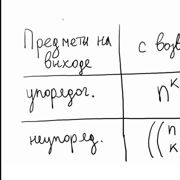 Предметы на выходе
с возв
упорядоч.
n^k
неупоряд.
((n k